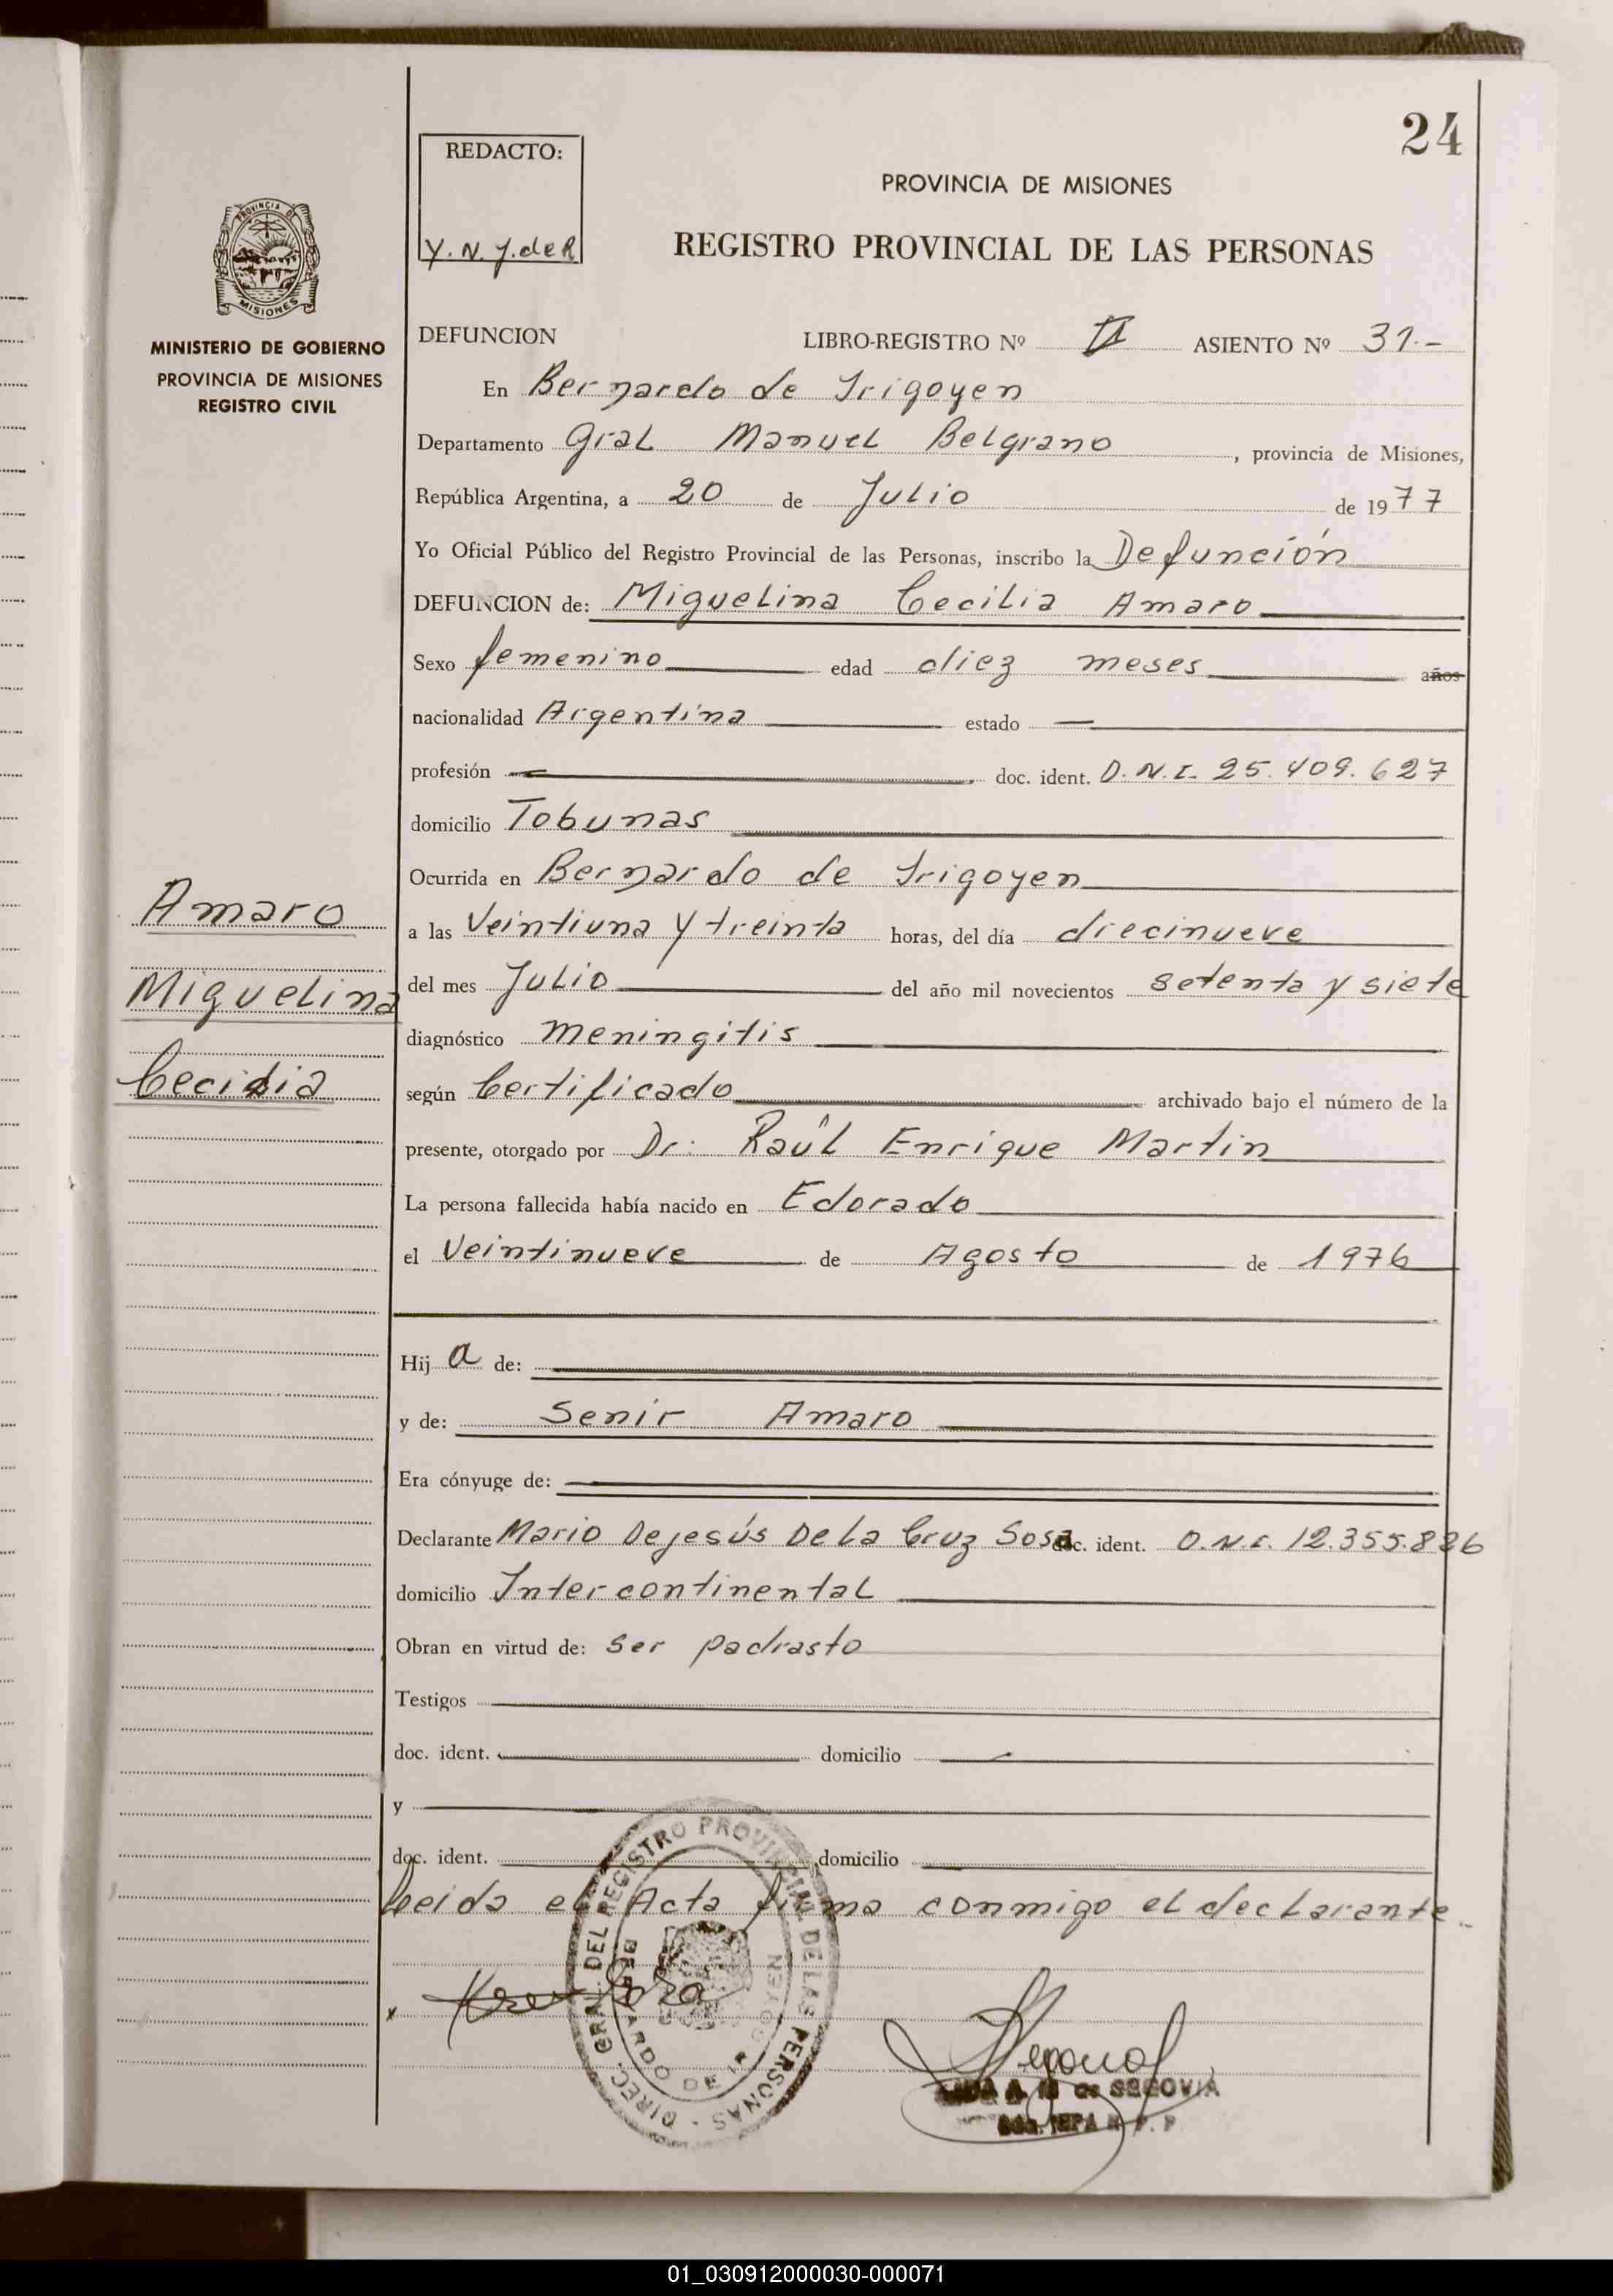 24
REDACTO:
Y. N. Y. de R
PROVINCIA DE MISIONES
REGISTRO PROVINCIAL DE LAS PERSONAS
PROVINCIA DE
MISIONES
MINISTERIO DE GOBIERNO
PROVINCIA DE MISIONES
REGISTRO CIVIL
DEFUNCION LIBRO-REGISTRO Nº ASIENTO Nº 31.-
En Bernardo de Irigoyen
Departamento Gral Manuel Belgrano, provincia de Misiones,
República Argentina, a 20 de Julio de 1977
Yo Oficial Público del Registro Provincial de las Personas, inscribo la Defunción
DEFUNCION de: Miguelina Cecilia Amaro
Sexo femenino edad diez meses años
nacionalidad Argentina estado —
profesión — doc. ident. D.N.I. 25.409.627
domicilio Tobunas
Ocurrida en Bernardo de Irigoyen
a las Veintiuna y treinta horas, del día diecinueve
del mes Julio del año mil novecientos setenta y siete
diagnóstico meningitis
según Certificado archivado bajo el número de la
presente, otorgado por Dr: Raúl Enrique Martin
La persona fallecida había nacido en Edorado
el Veintinueve de Agosto de 1976
Hija de:
y de: Senir Amaro
Era cónyuge de:
Declarante Mario Dejesús De la Cruz Sosa doc. ident. D.N.I. 12.355.886
domicilio Intercontinental
Obran en virtud de: Ser padrasto
Testigos
doc. ident. domicilio
y
doc. ident. domicilio
Leida el Acta firma conmigo el declarante.
Amaro
Miguelina
Cecilia
DIREC. GRAL. DEL REGISTRO PROVINCIAL DE LAS PERSONAS
BERNARDO DE IRIGOYEN
de SEGOVIA
01_030912000030-000071